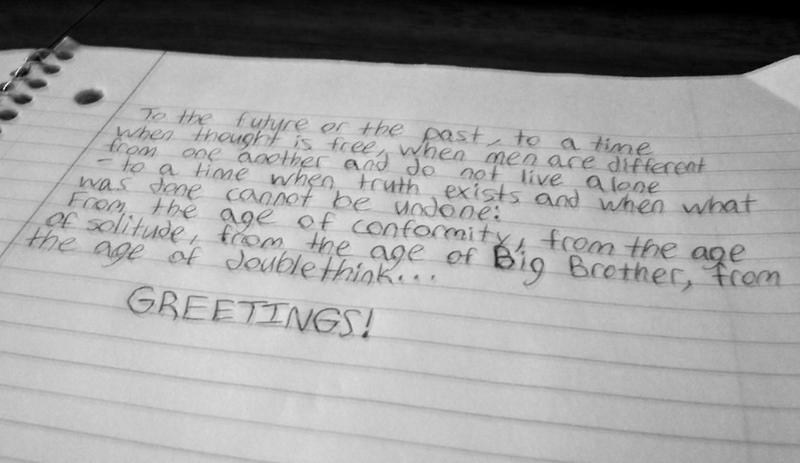 To the future or the past, to a time
when thought is free, when men are different
from one another and do not live alone
- to a time when truth exists and when what
was done cannot be undone:
From the age of conformity, from the age
of solitude, from the age of Big Brother, from
the age of doublethink...
GREETINGS!